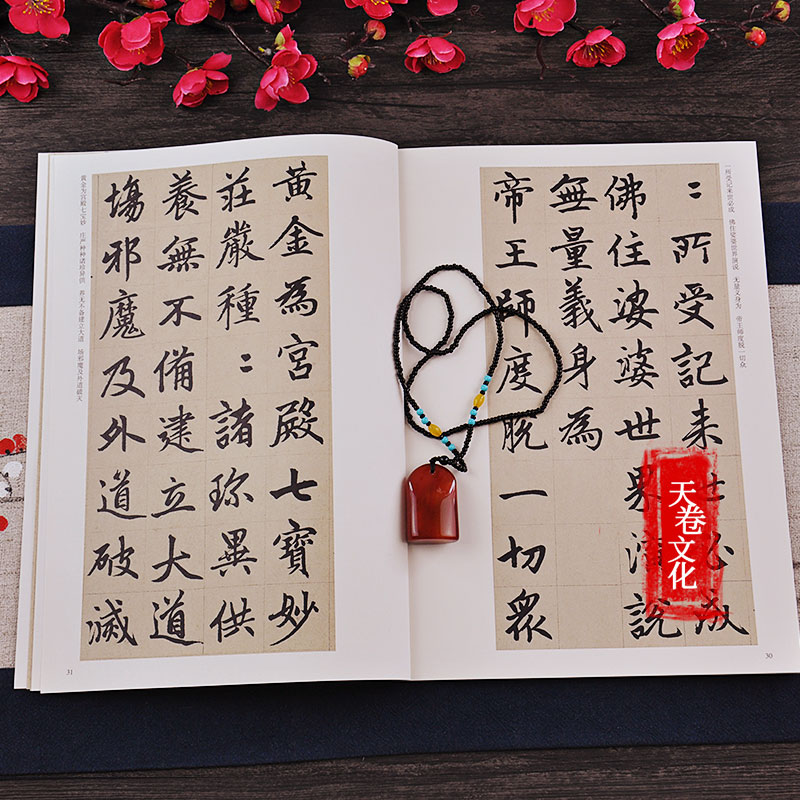 一所受记来世必成 佛住娑婆世界演说 无量义身为 帝王师度脱一切众
〻所受記来世必成
佛住娑婆世界演說
無量義身為
帝王師度脫一切眾
30
黄金為宮殿七寶妙
莊嚴種〻諸珎異供
養無不備建立大道
塲邪魔及外道破滅
黄金为宫殿七宝妙 庄严种种诸珍异供 养无不备建立大道 场邪魔及外道破灭
31
天卷文化